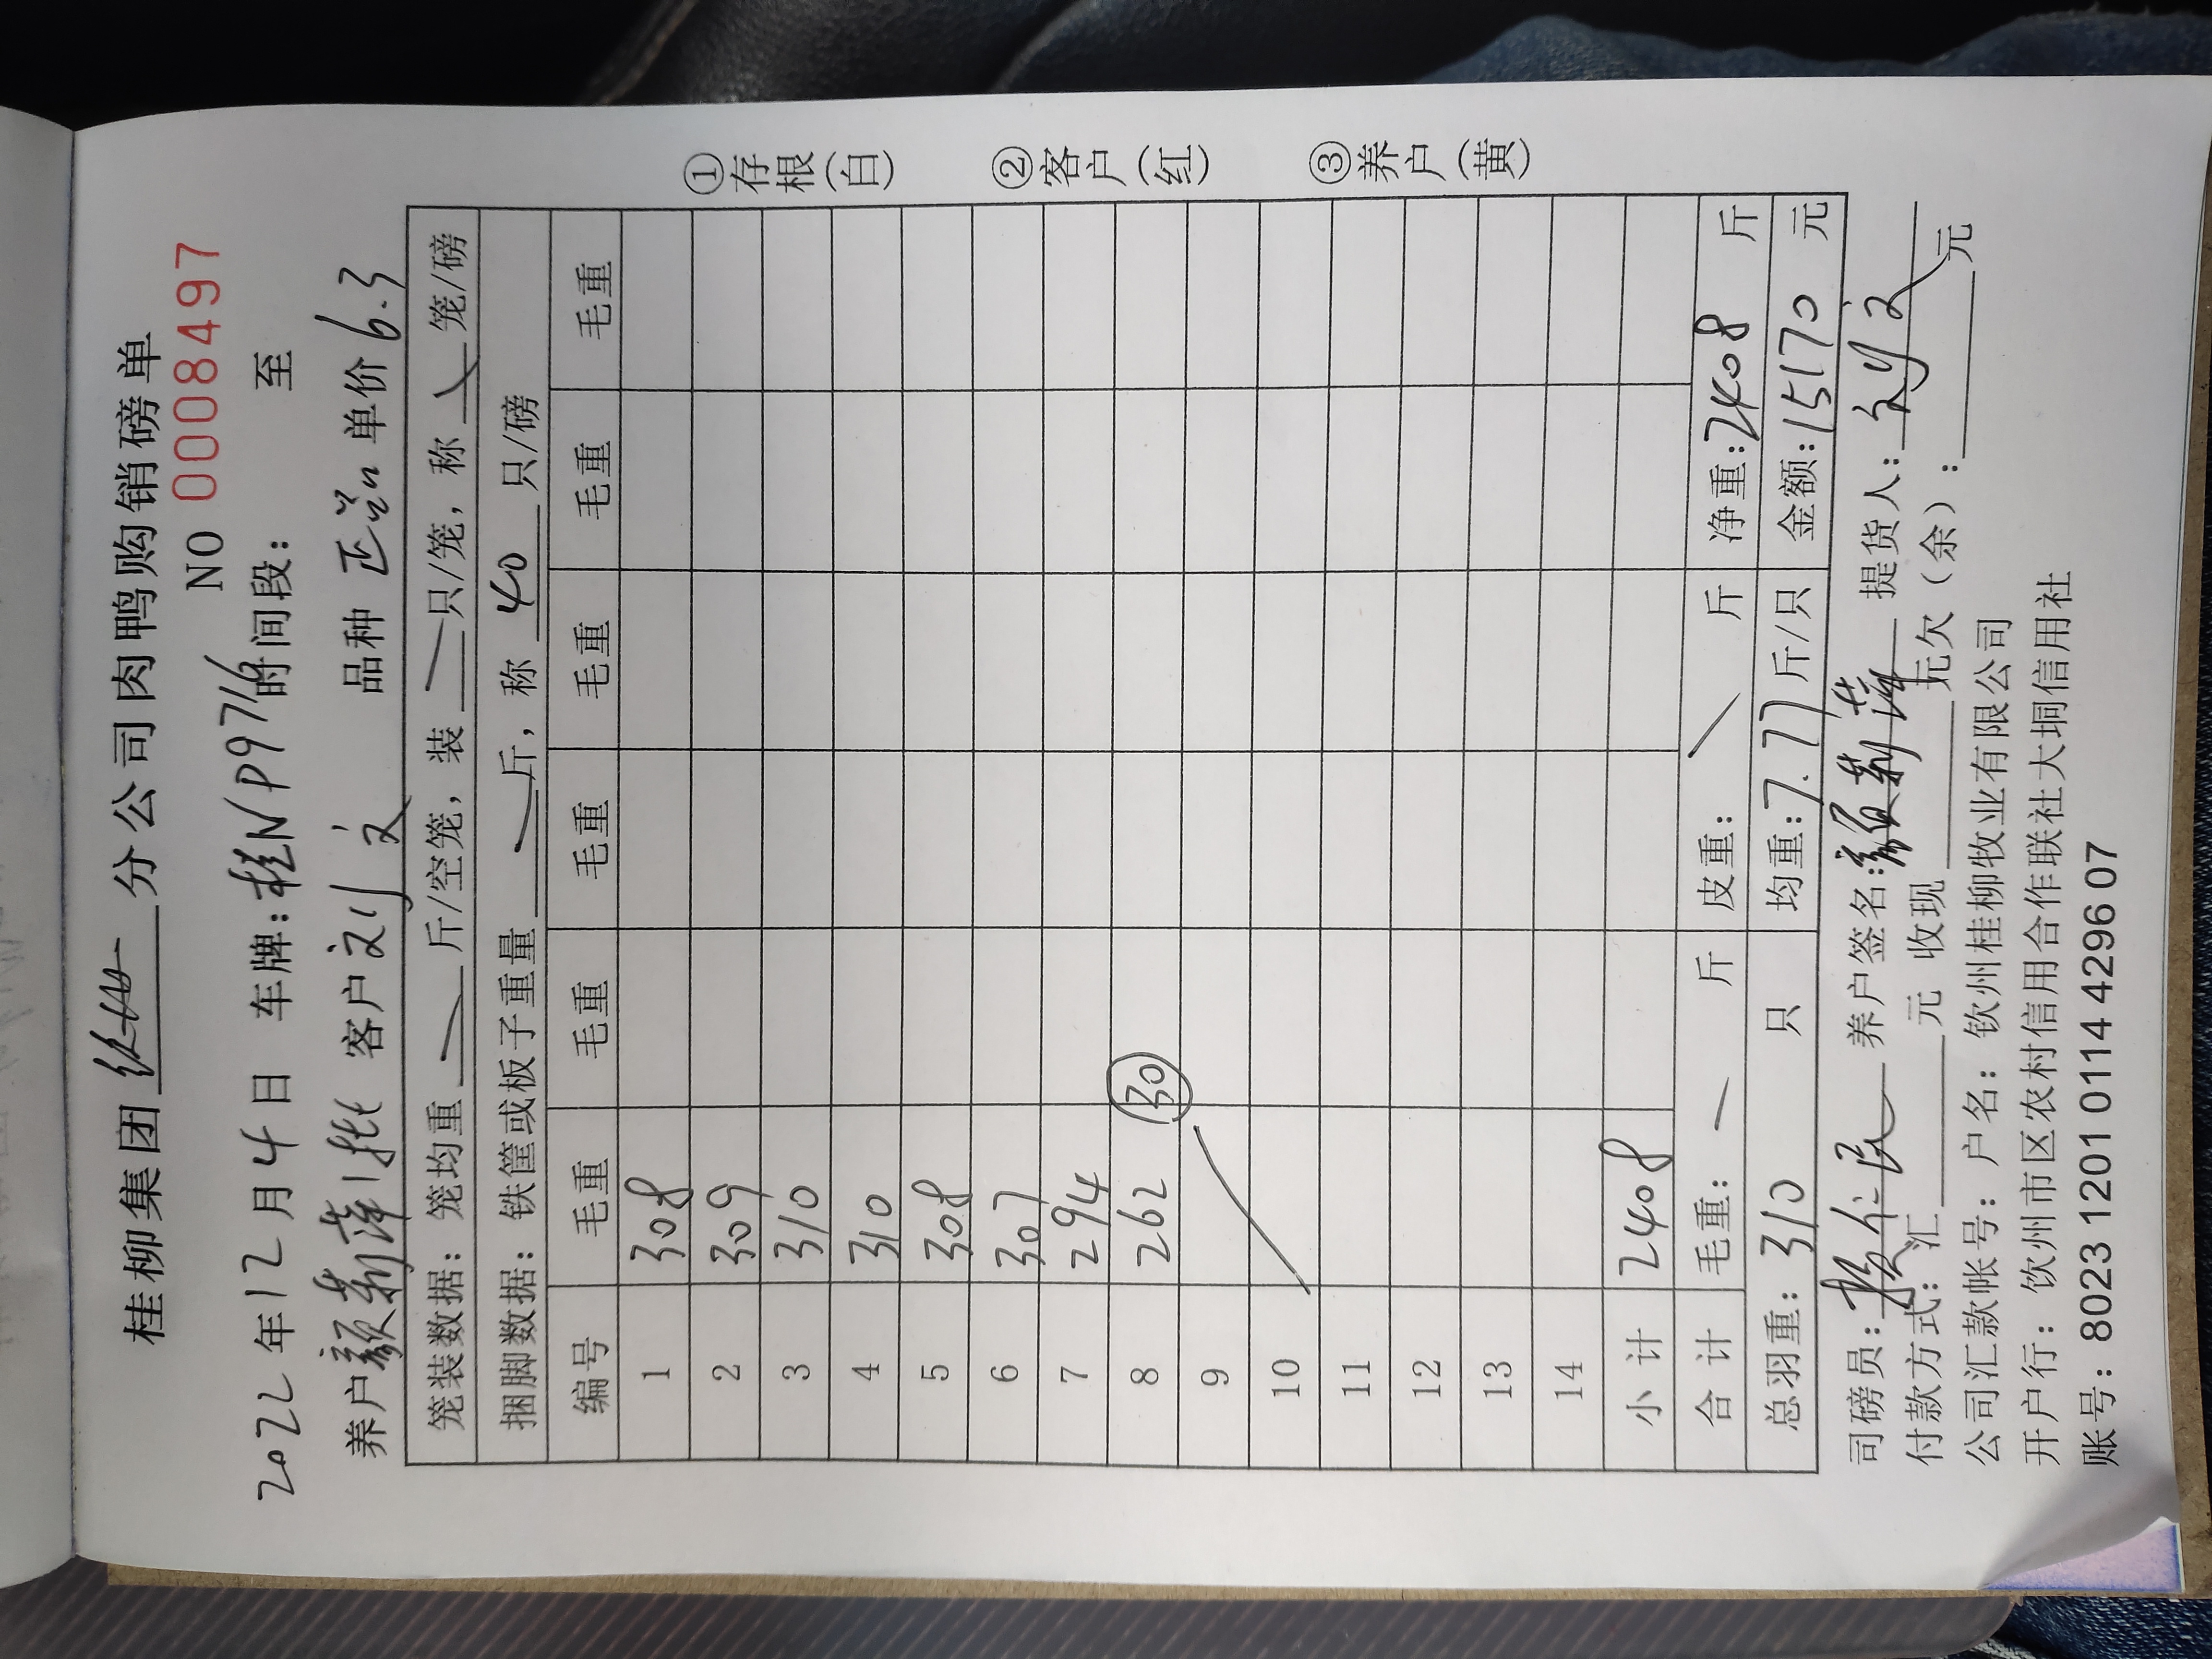 桂柳集团 分公司肉鸭购销磅单
NO 0008497
2022年12月4日 车牌:桂NP9716时间段: 至
养户颜菊萍1批 客户刘文 品种 正 单价6.3
笼装数据:笼均重 斤/空笼,装 只/笼,称 笼/磅
捆脚数据:铁筐或板子重量 斤,称 40 只/磅
编号 毛重 毛重 毛重 毛重 毛重 毛重
1 308
2 309
3 310
4 310
5 308
6 307
7 294
8 262 30
9
10
11
12
13
14
小计 2408
合计 毛重: 斤 皮重: 斤 净重:2408 斤
总羽重:310 只 均重:7.77斤/只 金额:15170 元
①存根(白) ②客户(红) ③养户(黄)
司磅员: 养户签名:颜菊萍 提货人:刘文
付款方式:汇 元 收现 元欠(余): 元
公司汇款帐号:户名:钦州桂柳牧业有限公司
开户行:钦州市区农村信用合作联社大垌信用社
账号:8023 1201 0114 4296 07